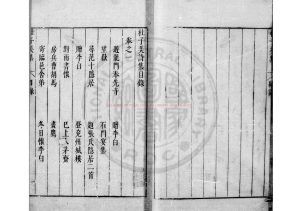 杜子美詩集目錄
卷之一
遊龍門奉先寺 贈李白
望嶽 石門宴集
尋范十隱居 題張氏隱居二首
贈李白 登兗州城樓
對雨書懷 巳上人茅齋
房兵曹胡馬 畫鷹
寄臨邑舍弟 冬日懷李白